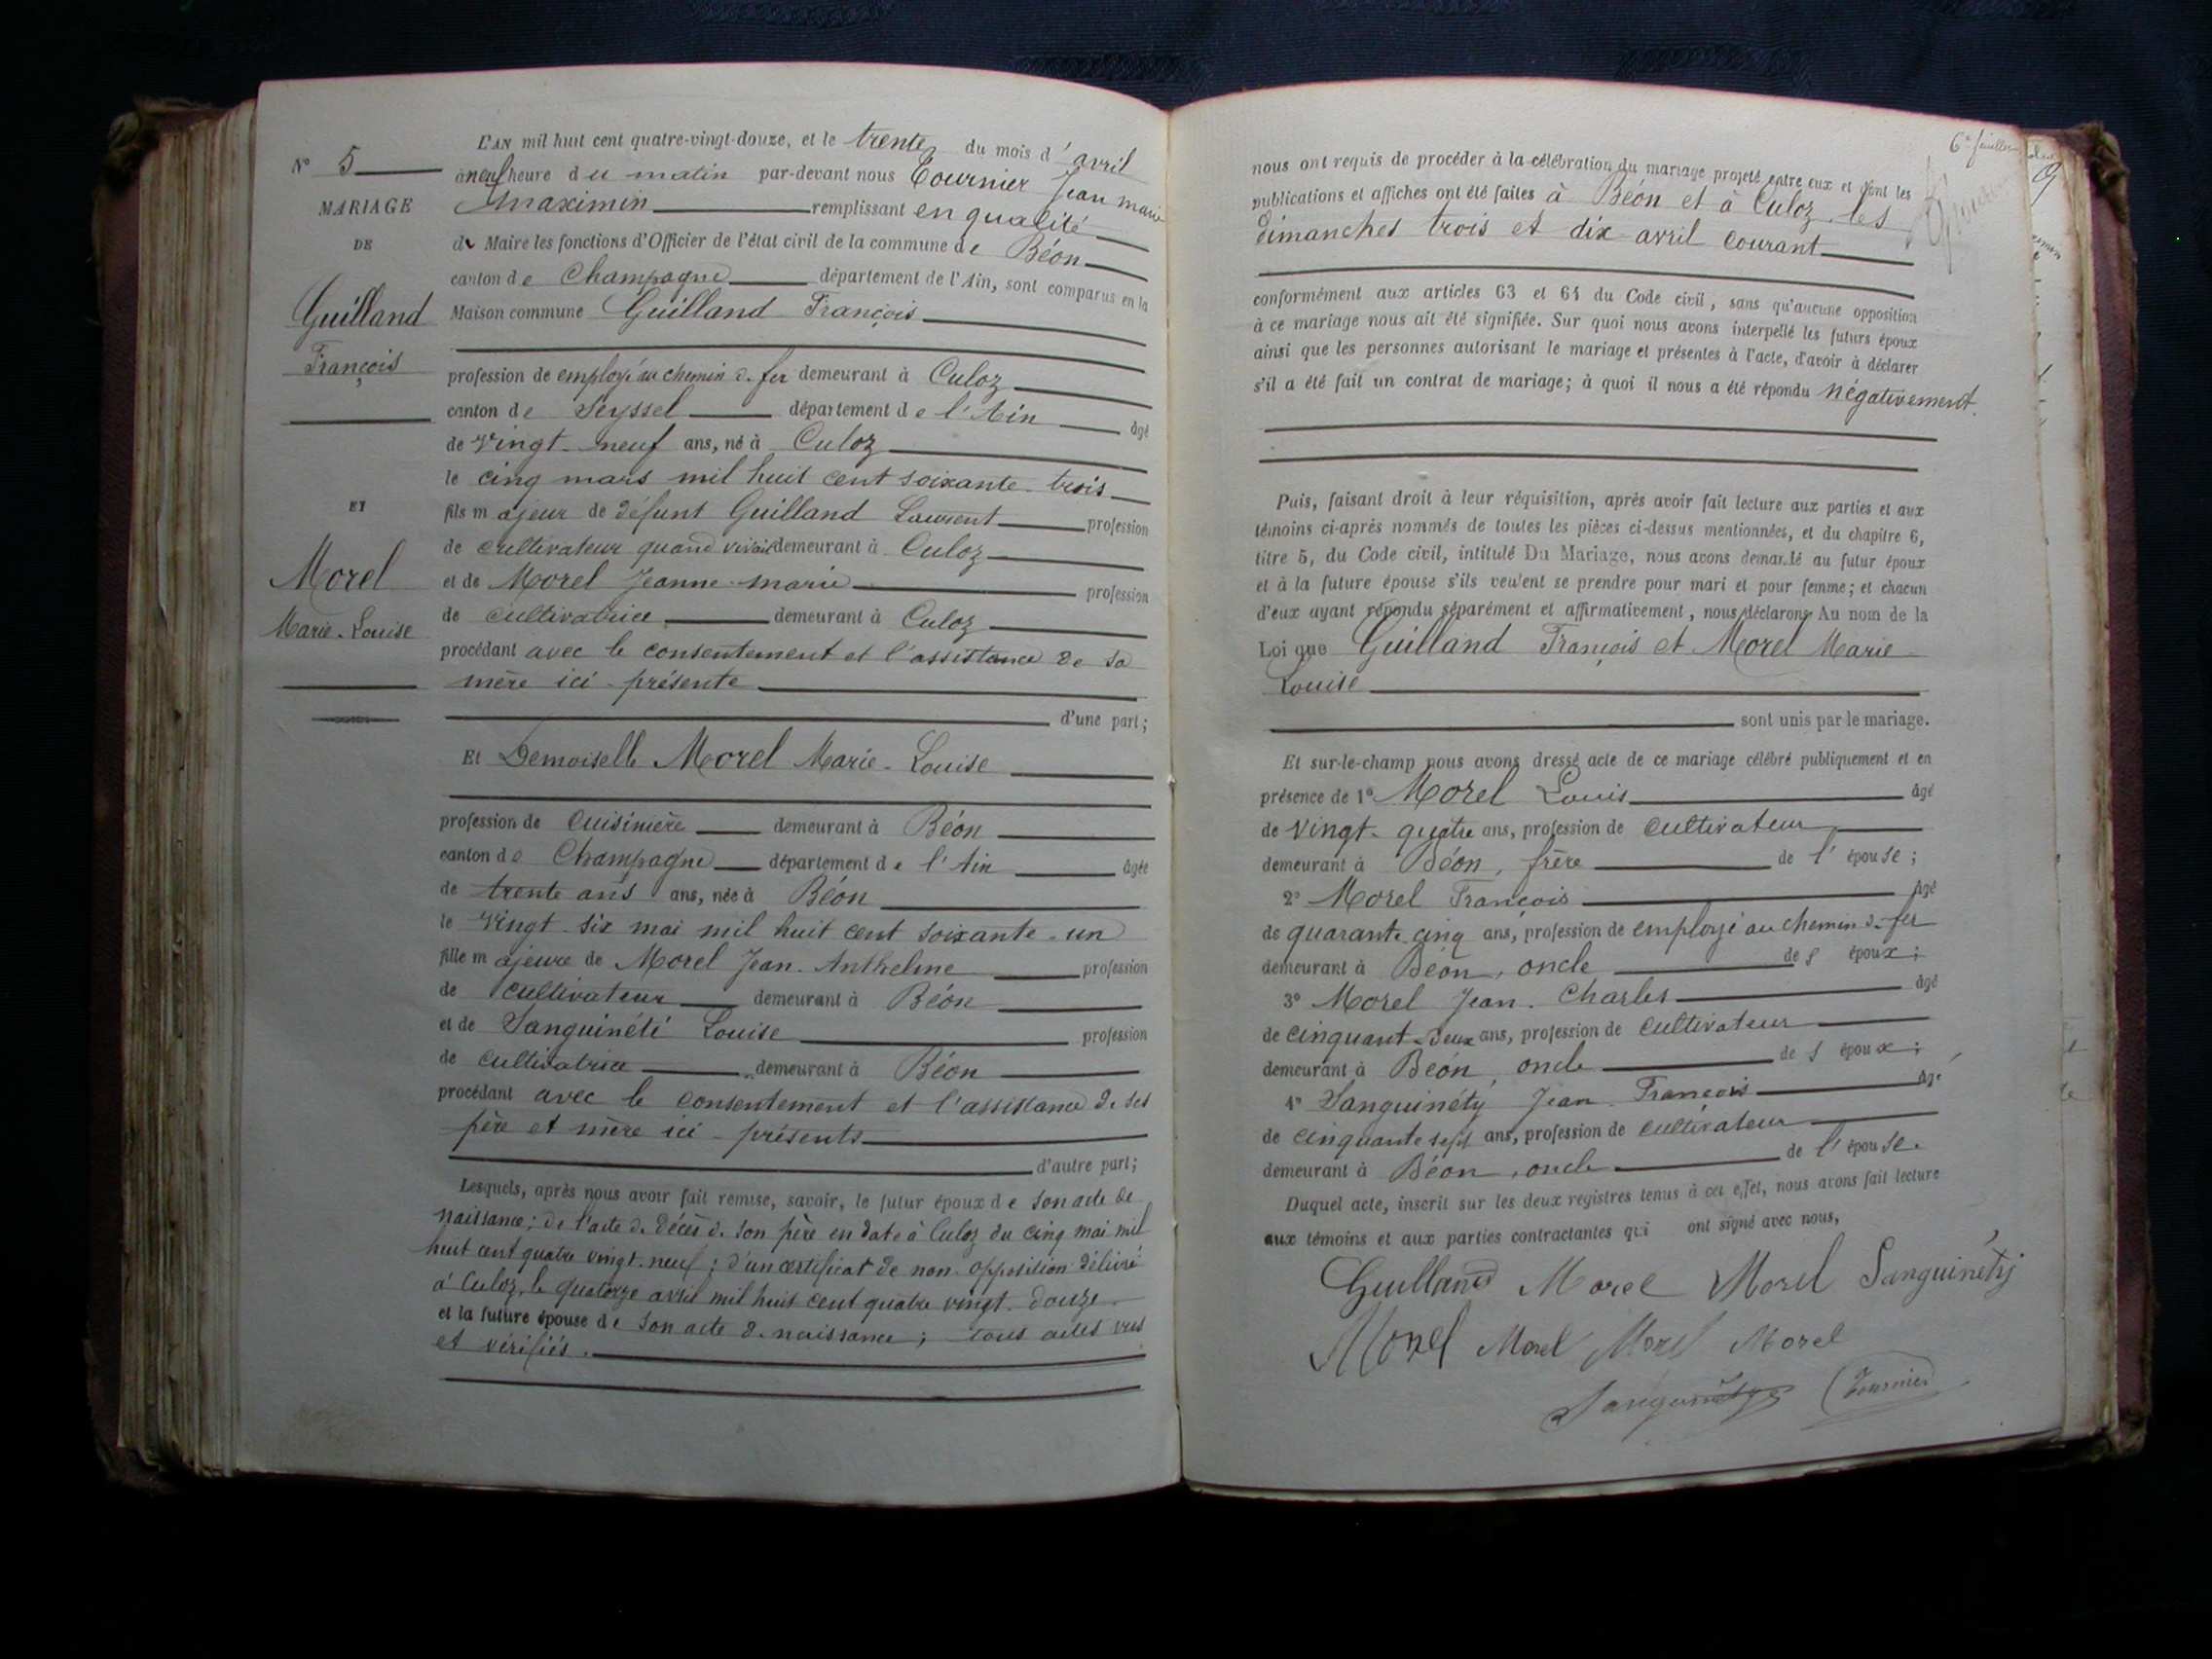 N° 5
MARIAGE
DE
Guilland
François
ET
Morel
Marie-Louise
L'AN mil huit cent quatre-vingt-douze, et le trente du mois d'avril
à neuf heure du matin par-devant nous Tournier Jean marie
Maximin remplissant en qualité
de Maire les fonctions d'Officier de l'état civil de la commune de Béon
canton de Champagne département de l'Ain, sont comparus en la
Maison commune Guilland François
profession de employé au chemin de fer demeurant à Culoz
canton de Seyssel département de l'Ain âgé
de vingt-neuf ans, né à Culoz
le cinq mars mil huit cent soixante-trois
fils majeur de défunt Guilland Laurent profession
de cultivateur quand vivait demeurant à Culoz
et de Morel Jeanne-marie profession
de cultivatrice demeurant à Culoz
procédant avec le consentement et l'assistance de sa
mère ici-présente
d'une part;
Et Demoiselle Morel Marie-Louise
profession de cuisinière demeurant à Béon
canton de Champagne département de l'Ain âgée
de trente ans ans, née à Béon
le vingt-six mai mil huit cent soixante-un
fille majeure de Morel Jean-Anthelme profession
de cultivateur demeurant à Béon
et de Sanguinété Louise profession
de cultivatrice demeurant à Béon
procédant avec le consentement et l'assistance de ses
père et mère ici-présents
d'autre part;
Lesquels, après nous avoir fait remise, savoir, le futur époux de son acte de
naissance; de l'acte de décès de son père en date à Culoz du cinq mai mil
huit cent quatre vingt-neuf; d'un certificat de non-opposition délivré
à Culoz, le quatorze avril mil huit cent quatre vingt-douze
et la future épouse de son acte de naissance; tous actes vus
et vérifiés.
6e feuillet
nous ont requis de procéder à la célébration du mariage projeté entre eux et dont les
publications et affiches ont été faites à Béon et à Culoz les
dimanches trois et dix avril courant
conformément aux articles 63 et 64 du Code civil, sans qu'aucune opposition
à ce mariage nous ait été signifiée. Sur quoi nous avons interpellé les futurs époux
ainsi que les personnes autorisant le mariage et présentes à l'acte, d'avoir à déclarer
s'il a été fait un contrat de mariage; à quoi il nous a été répondu négativement.
Puis, faisant droit à leur réquisition, après avoir fait lecture aux parties et aux
témoins ci-après nommés de toutes les pièces ci-dessus mentionnées, et du chapitre 6,
titre 5, du Code civil, intitulé Du Mariage, nous avons demandé au futur époux
et à la future épouse s'ils veulent se prendre pour mari et pour femme; et chacun
d'eux ayant répondu séparément et affirmativement, nous déclarons Au nom de la
Loi que Guilland François et Morel Marie-
Louise
sont unis par le mariage.
Et sur-le-champ nous avons dressé acte de ce mariage célébré publiquement et en
présence de 1° Morel Louis âgé
de vingt-quatre ans, profession de cultivateur
demeurant à Béon, frère de l'épouse;
2° Morel François âgé
de quarante-cinq ans, profession de employé au chemin de fer
demeurant à Béon, oncle des époux;
3° Morel Jean-Charles âgé
de cinquant-deux ans, profession de cultivateur
demeurant à Béon, oncle des époux;
4° Sanguinéty Jean-François âgé
de cinquante sept ans, profession de cultivateur
demeurant à Béon, oncle de l'épouse.
Duquel acte, inscrit sur les deux registres tenus à cet effet, nous avons fait lecture
aux témoins et aux parties contractantes qui ont signé avec nous,
Guilland Morel Morel Sanguinéty
Morel Morel Morel Morel
Sanguinéty Tournier